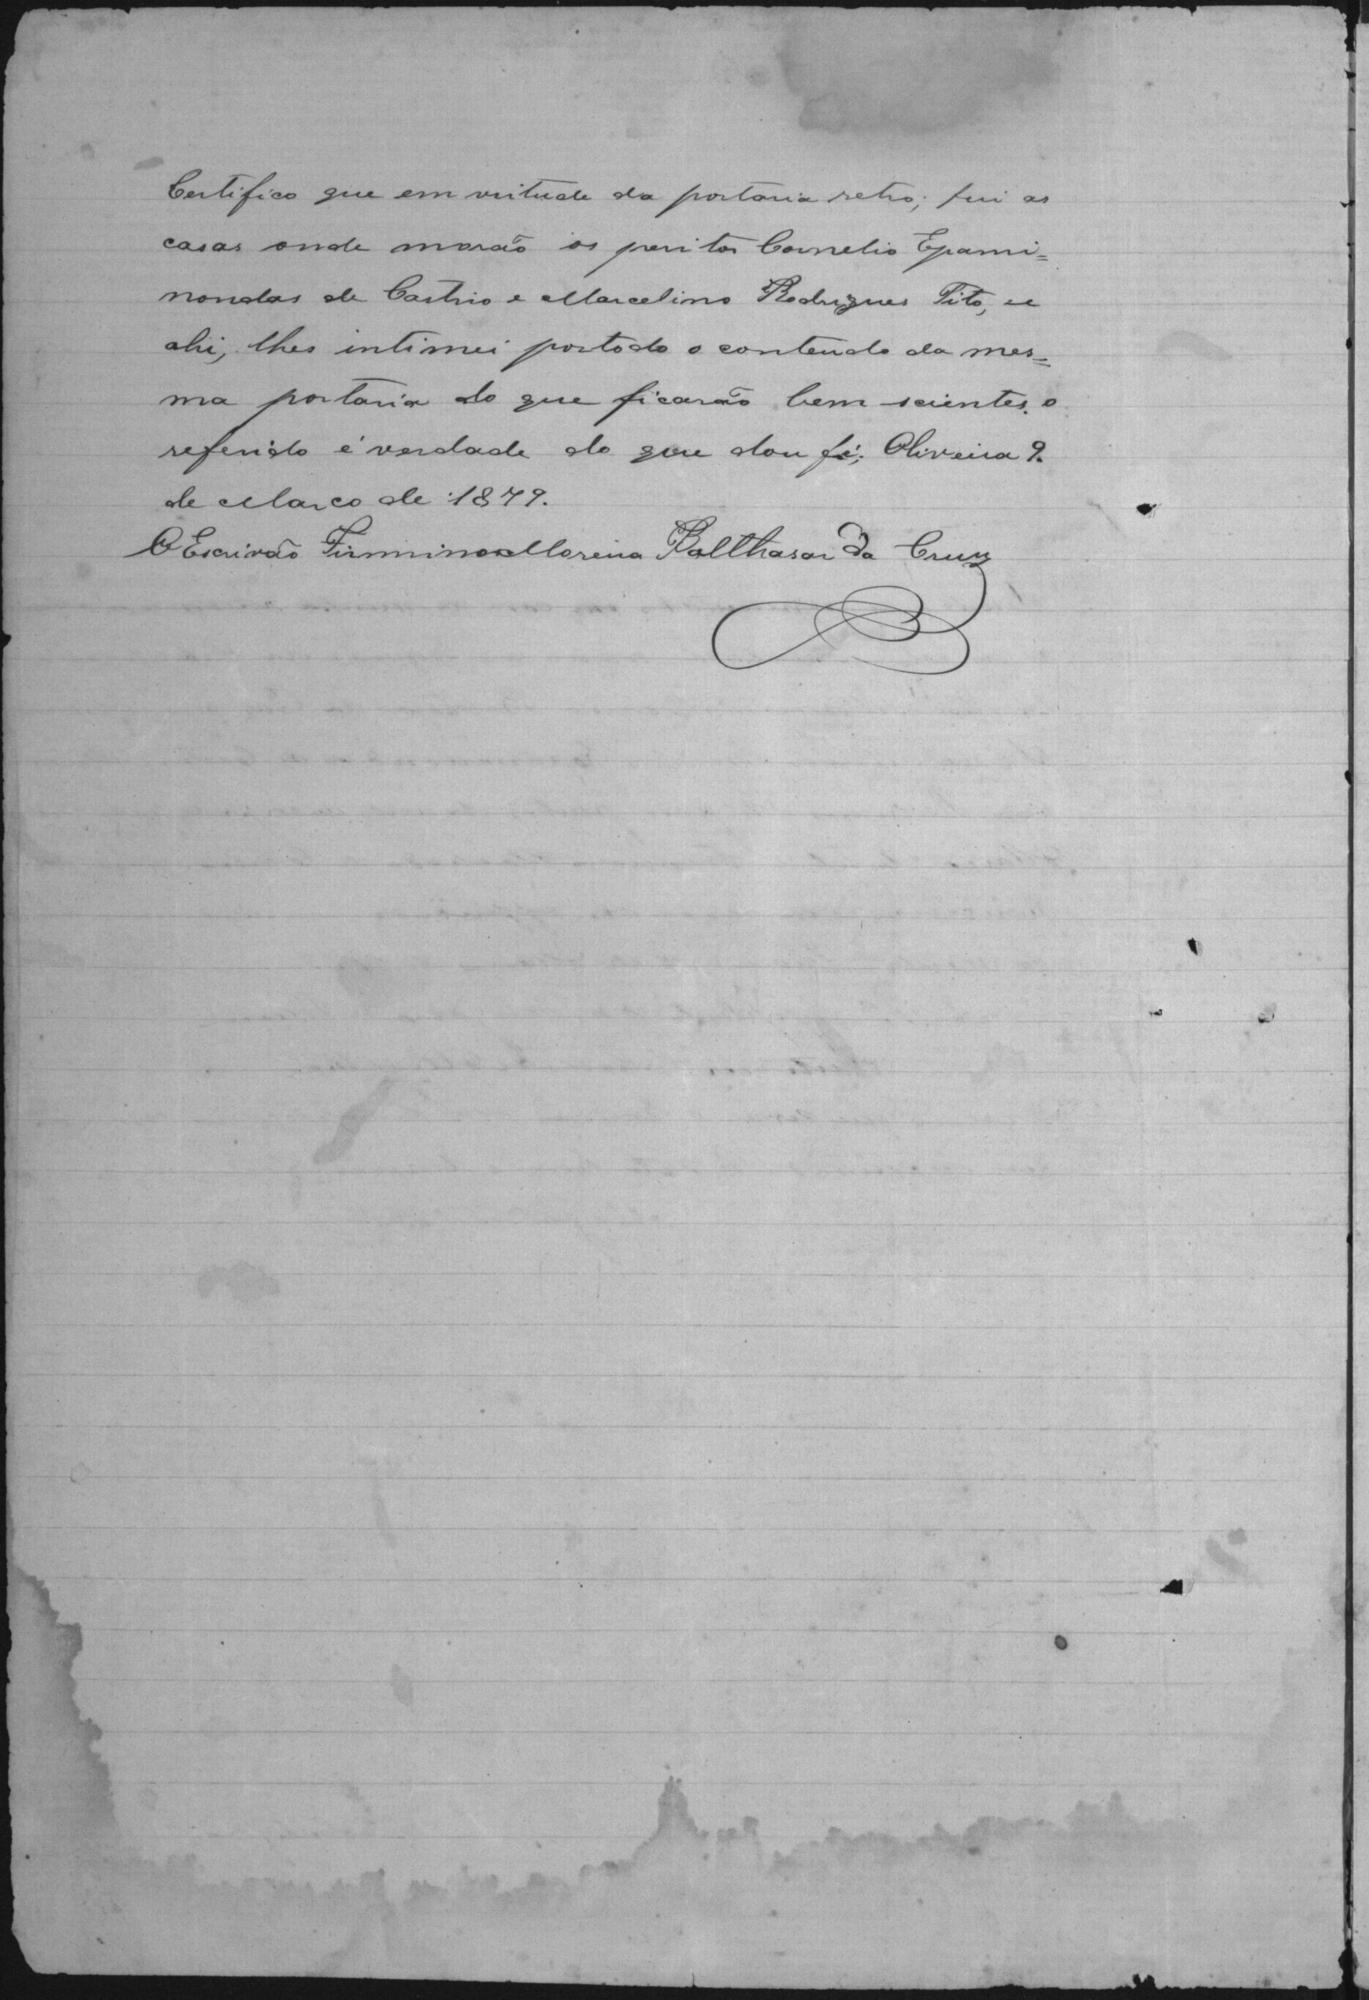 Certifico que em virtude da portaria retro; fui as
casas onde morão os peritos Cornelio Epami=
nondas de Castrio e Marcelino Rodrigues Tito, e
ahi, lhes intimei portodo o contendo da mes=
ma portaria do que ficarão bem scientes. o
referido é verdade do que dou fé; Oliveira 9.
de Março de 1879.
O Escrivão Firmino Moreira Balthasar da Cruz